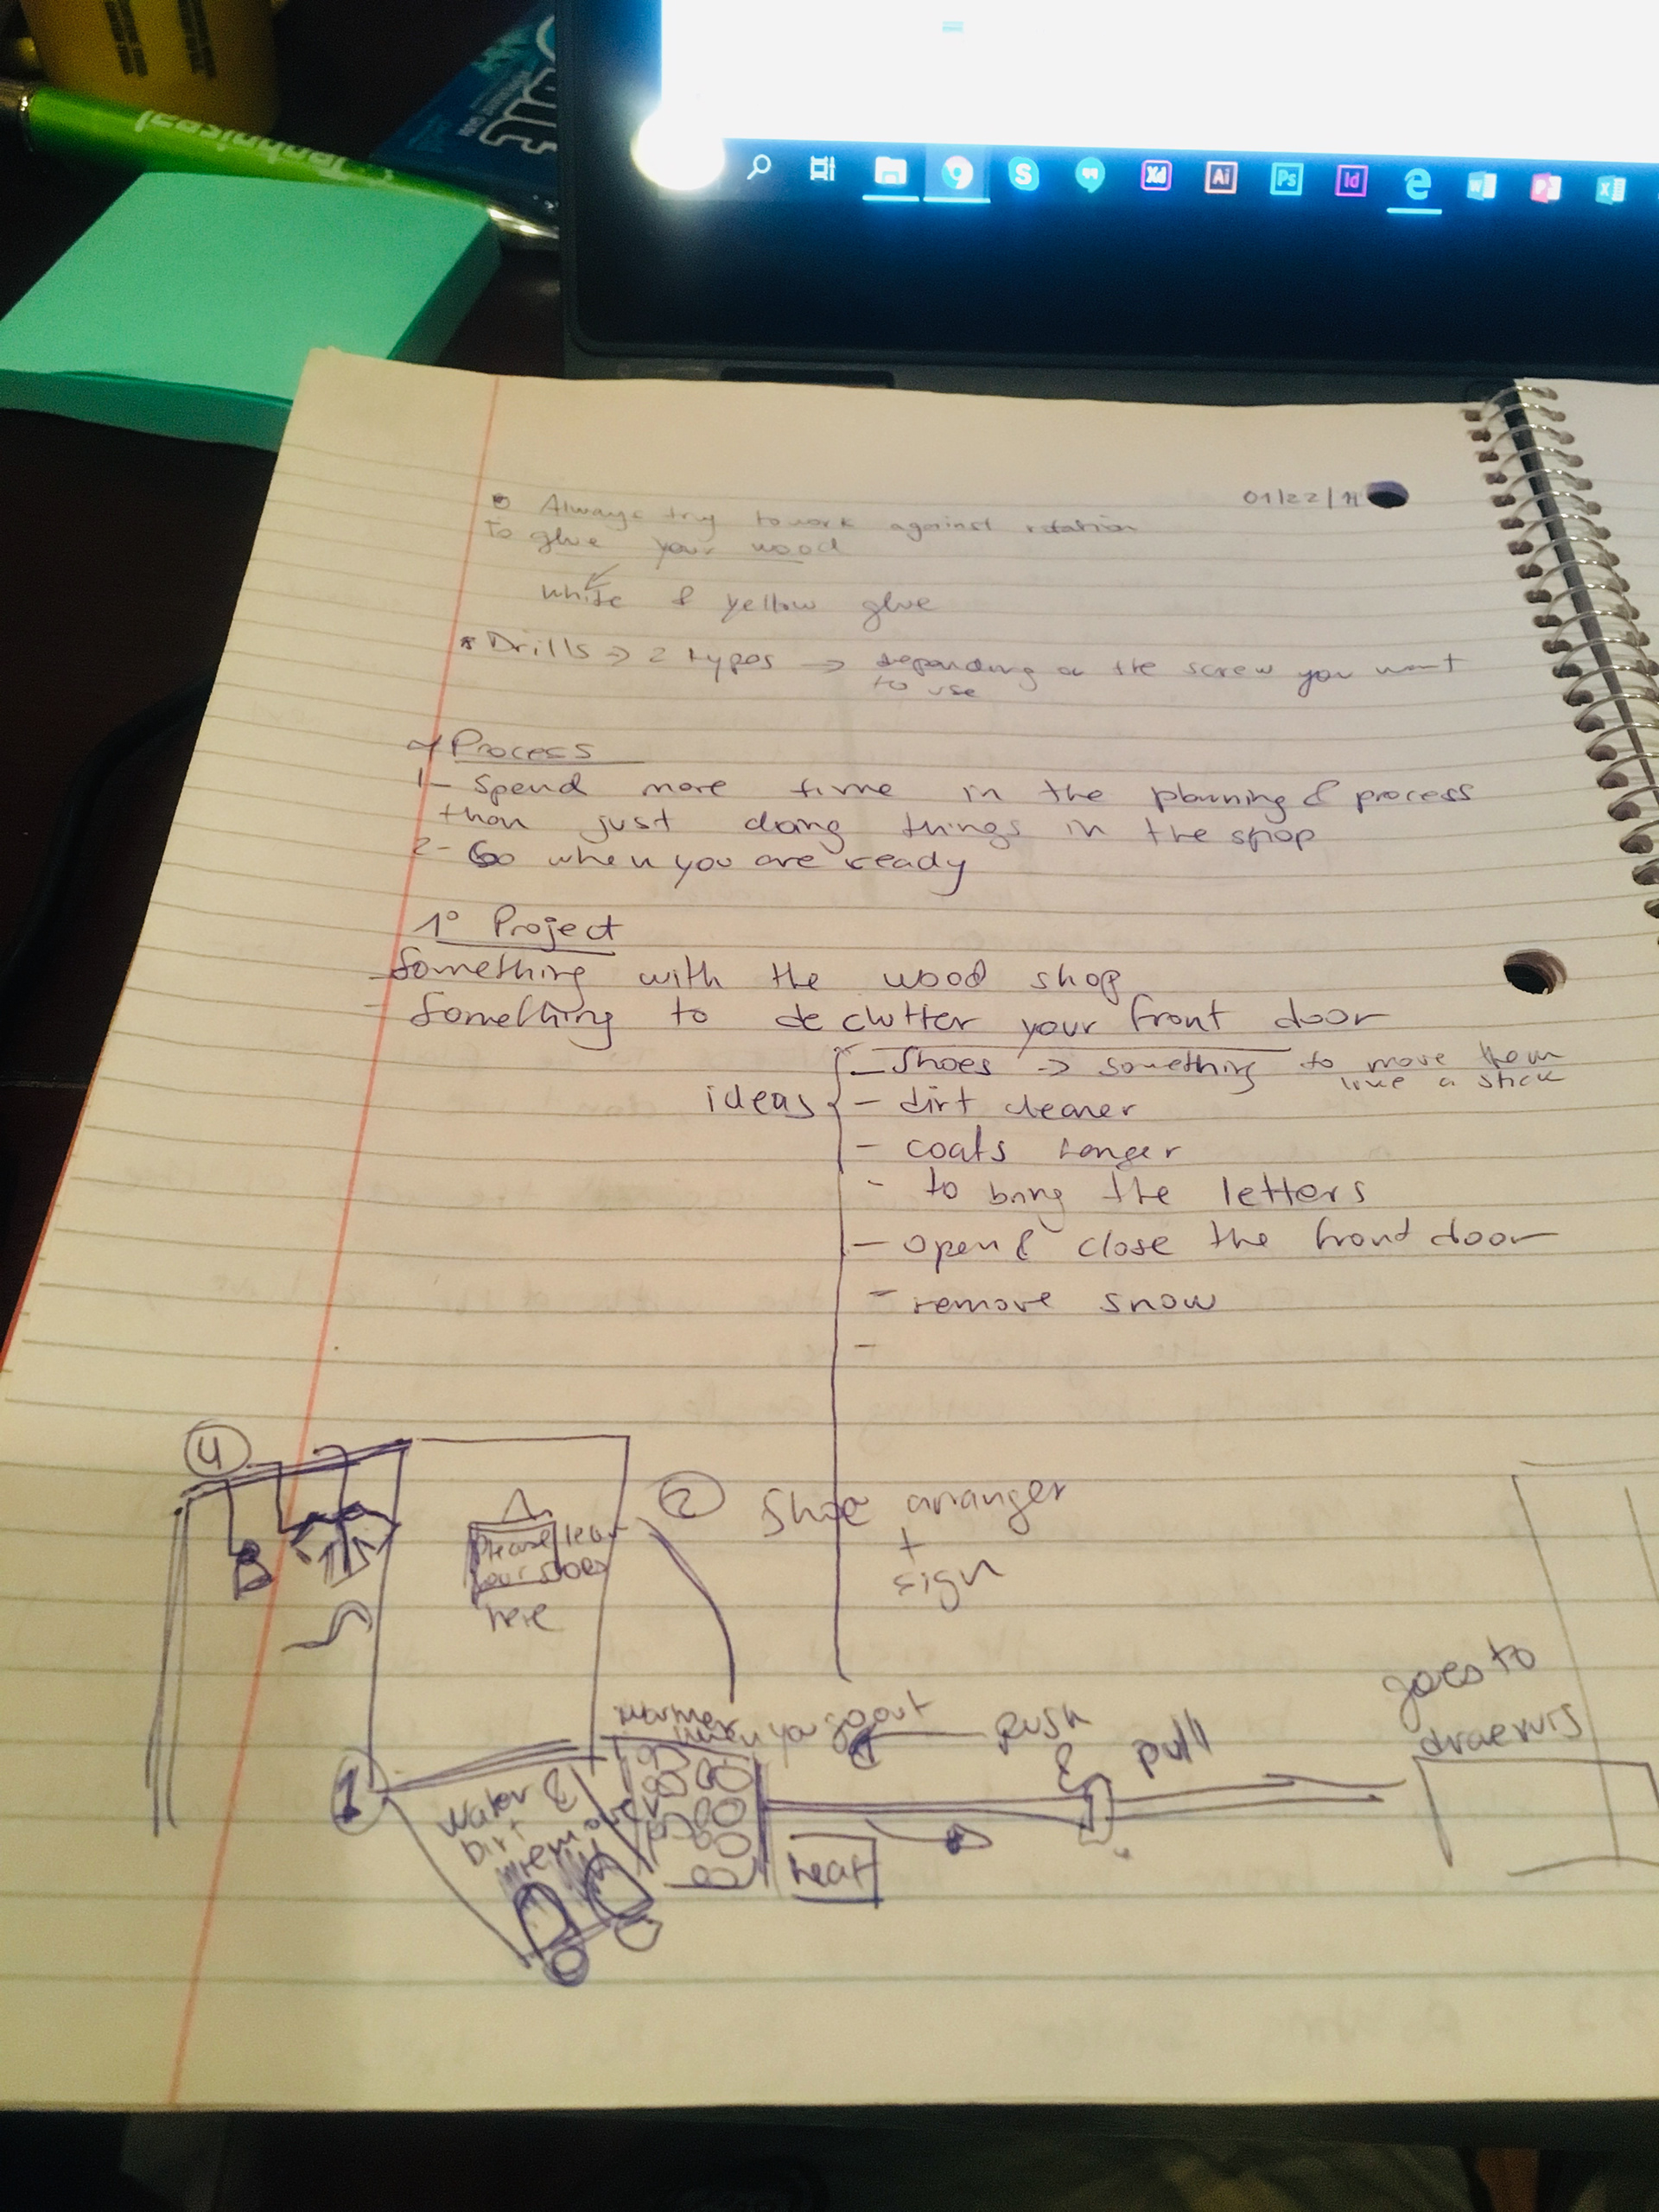 Technigal
01/22/19
Always try to work against rotation
to glue your wood
white & yellow glue
* Drills → 2 types → depending on the screw you want
to use
Process
1- Spend more time in the planning & process
than just doing things in the shop
2- Go when you are ready
1° Project
- Something with the wood shop
- Something to de clutter your front door
ideas
- Shoes → something to move them
like a stick
- dirt cleaner
- coats hanger
- to bring the letters
- open & close the front door
- remove snow
-
4
Please leav
your shoes
here
2 Shoe arranger
+
sign
goes to
draewrs
warmer
when you go out
push
pull
1
water &
dirt
remover
heat
S
Xd
Ai
Ps
Id